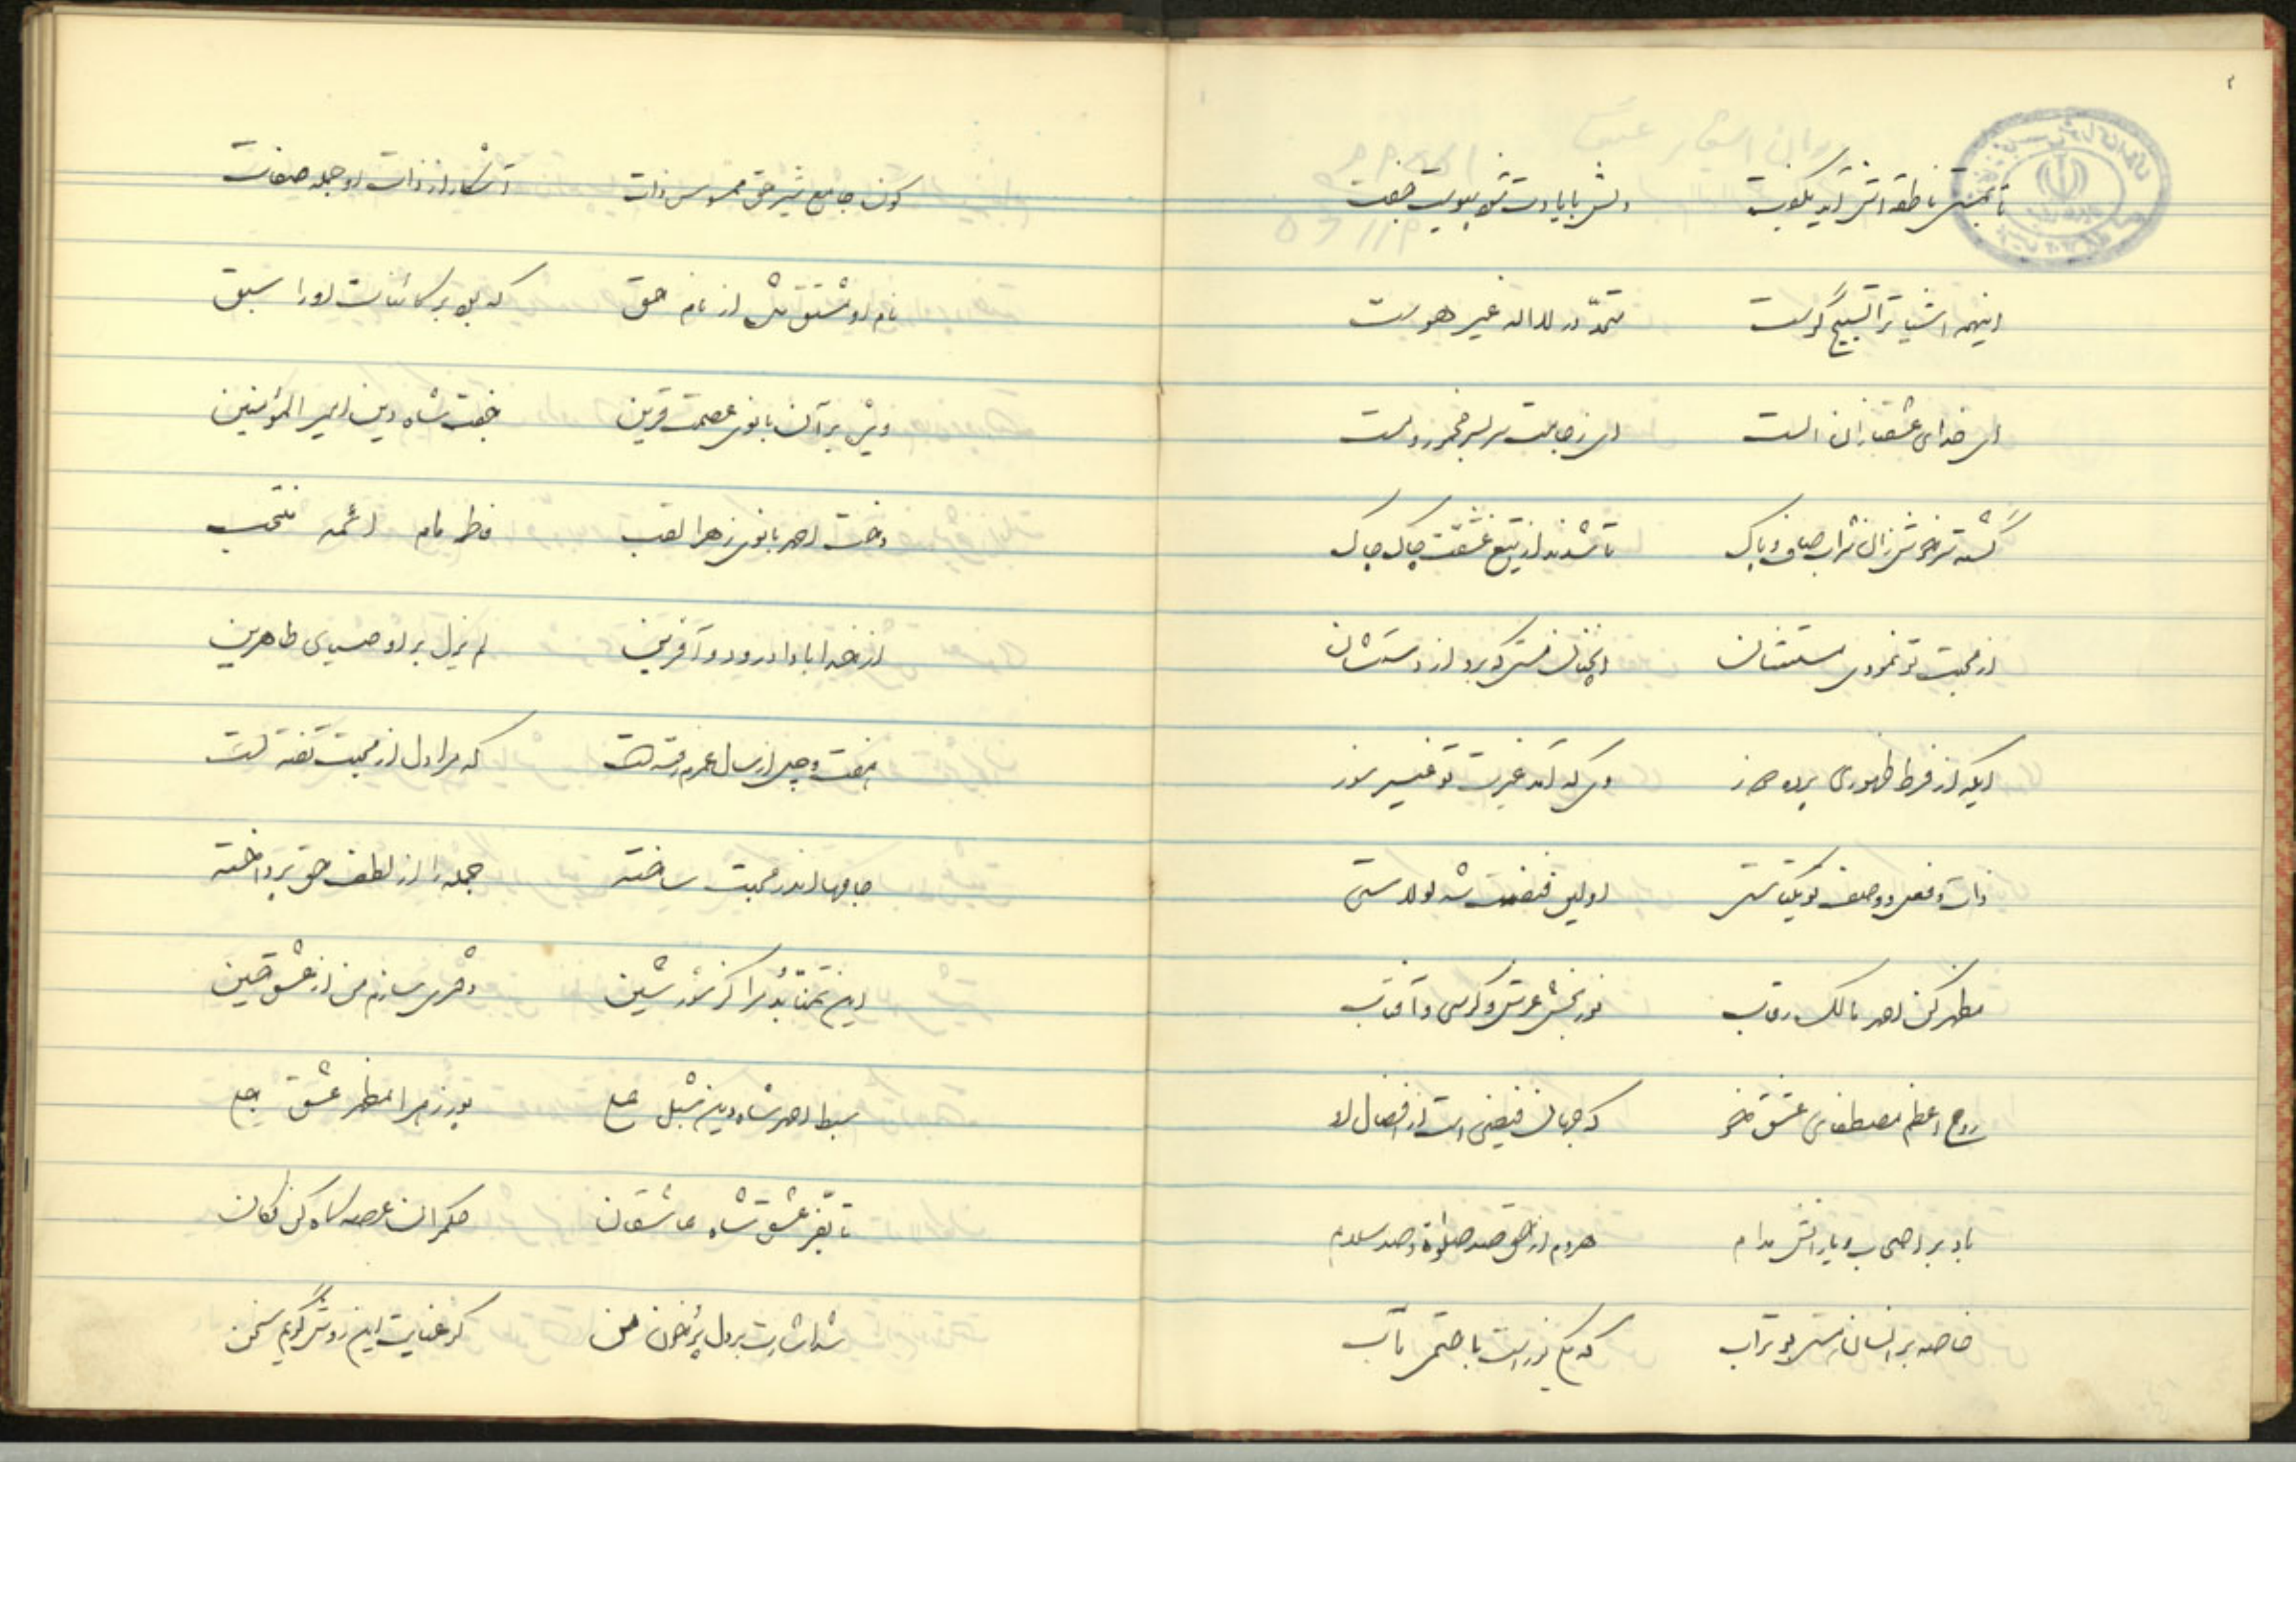 ۲
تا ناطقه اش آید بگوید دلش با یادت شود جفت
اینهمه اشیا ترا تسبیح گوست در لا اله غیر هوست
ای خدای عشقبازان الست ای ز جامت سر بسر مخمور و مست
گشته سرخوش زان شراب صاف و پاک تا شدند از تیغ عشقت چاک چاک
از محبت تو نمودی مستشان آنچنان مستی که برد از دستشان
ایکه از فرط ظهوری وی که آمد غیرت تو غیر سوز
ذات و فعل و وصف او یکتاستی اولین فیضت شه لولاستی
مظهر کل احمد مالک رقاب نور بخش عرش و کرسی و آفتاب
روح اعظم مصطفای عشق خو که جهان فیضی است از افضال او
باد بر اصحاب و یارانش مدام هردم از حق صد صلوة و صد سلام
خاصه بر انسان بو تراب که یکی نور است با ختمی مآب
کون جامع شیر حق ممسوس ذات آشکار از ذات او جمله صفات
نام او مشتق شد از نام حق که بود بر کائنات او را سبق
ویژه بر آن بانوی عصمت قرین جفت شاه دین امیر المؤمنین
دخت احمد بانوی زهرا لقب مام ائمه منتجب
از خدا بادا درود و آفرین لم یزل بر اوصیای طاهرین
هفت و چل از سال عمرم رفته است که مرا دل از محبت تفته است
جامها اندر محبت ساخته جمله را از لطف حق پرداخته
این تمنا بُد مرا کز شور شین دفتری سازم من از عشق حسین
سبط احمد شاه دین شبل علی پور زهرا مظهر عشق جلی
تا عشق شاه عاشقان حکمران عرصه گاه کن فکان
شد اشارت بر دل پُر خون من کز عنایت این روش گویم سخن